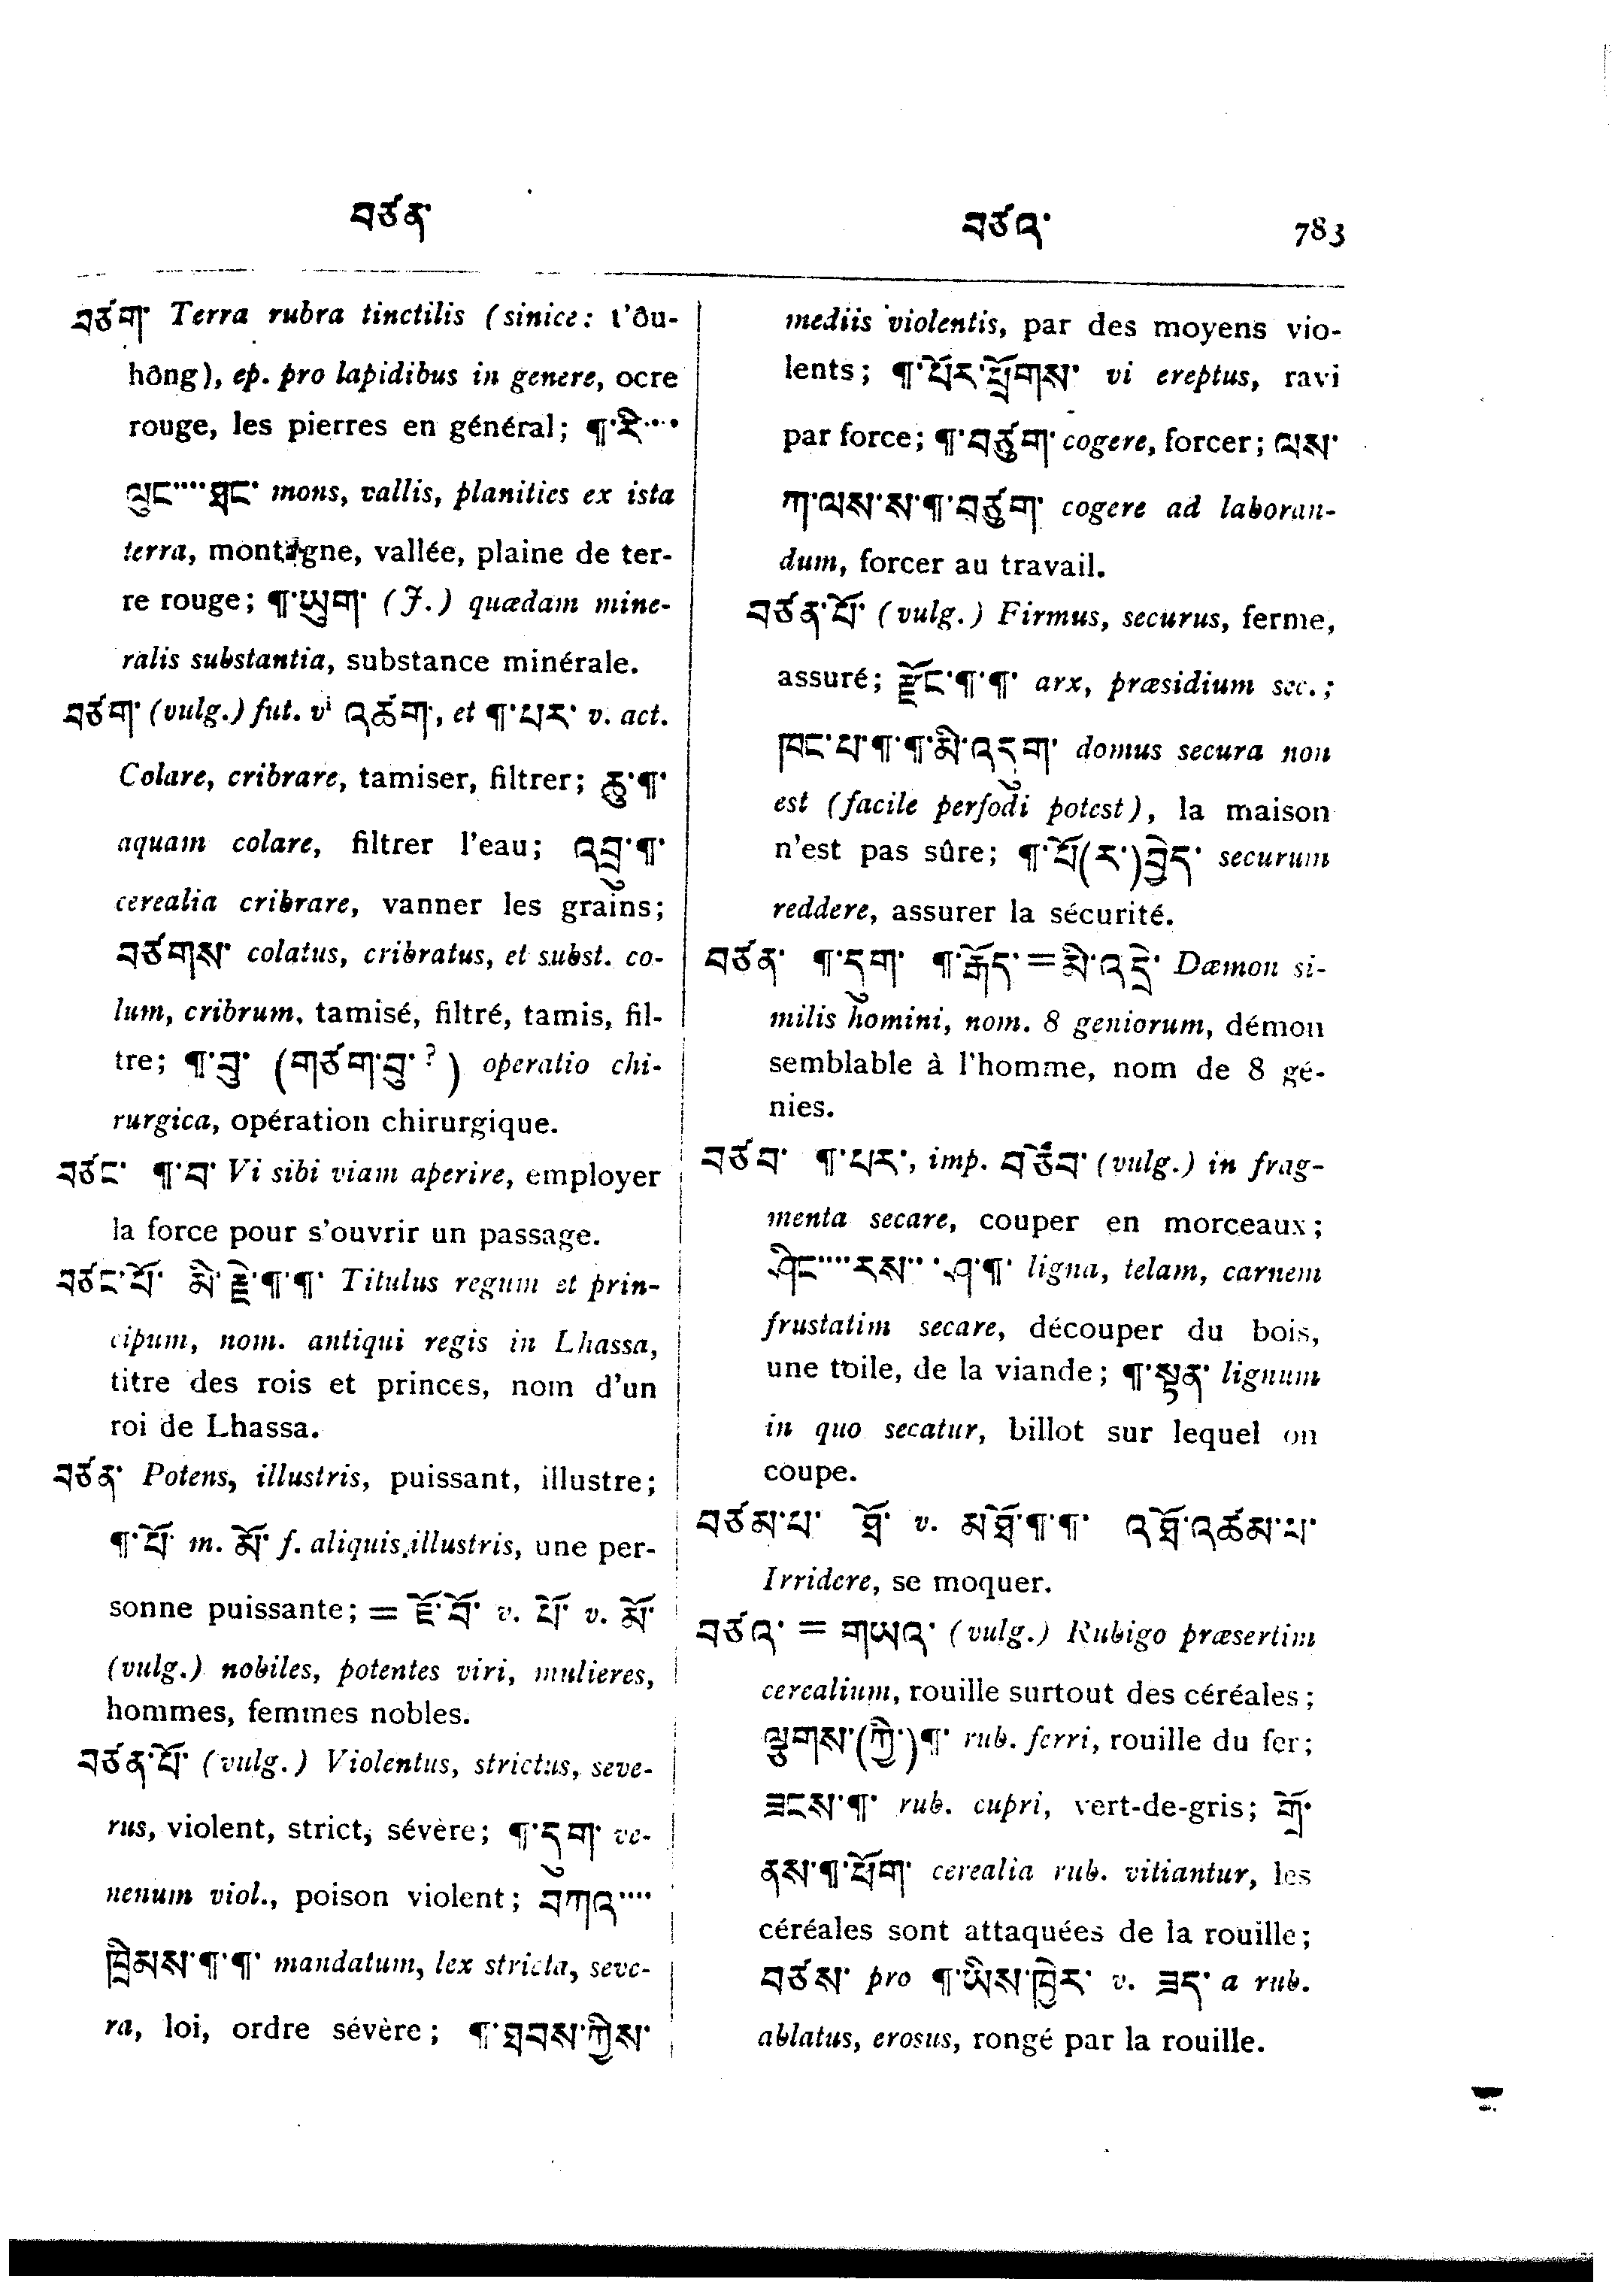 བཙན་
བཙའ་ 783
བཙག་ Terra rubra tinctilis (sinice: t'ôu-
hông), ep. pro lapidibus in genere, ocre
rouge, les pierres en général; ¶་རི་····
ལུང་····ཐང་ mons, vallis, planities ex ista
terra, montagne, vallée, plaine de ter-
re rouge; ¶་ཡུག་ (J.) quædam mine-
ralis substantia, substance minérale.
བཙག་ (vulg.) fut. vⁱ འཚག་, et ¶་པར་ v. act.
Colare, cribrare, tamiser, filtrer; ཆུ་¶་
aquam colare, filtrer l'eau; འབྲུ་¶་
cerealia cribrare, vanner les grains;
བཙགས་ colatus, cribratus, et subst. co-
lum, cribrum, tamisé, filtré, tamis, fil-
tre; ¶་བུ་ (གཙག་བུ་?) operatio chi-
rurgica, opération chirurgique.
བཙང་ ¶་བ་ Vi sibi viam aperire, employer
la force pour s'ouvrir un passage.
བཙང་པོ་ མི་རྗེ་¶་¶་ Titulus regum et prin-
cipum, nom. antiqui regis in Lhassa,
titre des rois et princes, nom d'un
roi de Lhassa.
བཙན་ Potens, illustris, puissant, illustre;
¶་པོ་ m. མོ་ f. aliquis illustris, une per-
sonne puissante; = ཇོ་བོ་ v. པོ་ v. མོ་
(vulg.) nobiles, potentes viri, mulieres,
hommes, femmes nobles.
བཙན་པོ་ (vulg.) Violentus, strictus, seve-
rus, violent, strict, sévère; ¶་དུག་ ve-
nenum viol., poison violent; བཀའ་····
ཁྲིམས་¶་¶་ mandatum, lex stricta, seve-
ra, loi, ordre sévère; ¶་ཐབས་ཀྱིས་
mediis violentis, par des moyens vio-
lents; ¶་པོར་ཕྲོགས་ vi ereptus, ravi
par force; ¶་བཙུག་ cogere, forcer; ལས་
ཀ་ལས་ས་¶་བཙུག་ cogere ad laboran-
dum, forcer au travail.
བཙན་པོ་ (vulg.) Firmus, securus, ferme,
assuré; རྫོང་¶་¶་ arx, præsidium sec.;
ཁང་པ་¶་¶་མི་འདུག་ domus secura non
est (facile perfodi potest), la maison
n'est pas sûre; ¶་པོ(ར་)བྱེད་ securum
reddere, assurer la sécurité.
བཙན་ ¶་དུག་ ¶་རྒོད་=མི་འདྲེ་ Dæmon si-
milis homini, nom. 8 geniorum, démon
semblable à l'homme, nom de 8 gé-
nies.
བཙབ་ ¶་པར་, imp. བཙོབ་ (vulg.) in frag-
menta secare, couper en morceaux;
ཤིང་····རས་····ཤ་¶་ ligna, telam, carnem
frustatim secare, découper du bois,
une toile, de la viande; ¶་སྟན་ lignum
in quo secatur, billot sur lequel on
coupe.
བཙམ་པ་ ཐོ་ v. མཐོ་¶་¶་ འཐོ་འཚམ་པ་
Irridere, se moquer.
བཙའ་ = གཡའ་ (vulg.) Rubigo præsertim
cerealium, rouille surtout des céréales;
ལྕགས་(ཀྱི་)¶་ rub. ferri, rouille du fer;
ཟངས་¶་ rub. cupri, vert-de-gris; གྲོ་
ནས་¶་ཕོག་ cerealia rub. vitiantur, les
céréales sont attaquées de la rouille;
བཙས་ pro ¶་ཡིས་ཁྱེར་ v. ཟད་ a rub.
ablatus, erosus, rongé par la rouille.